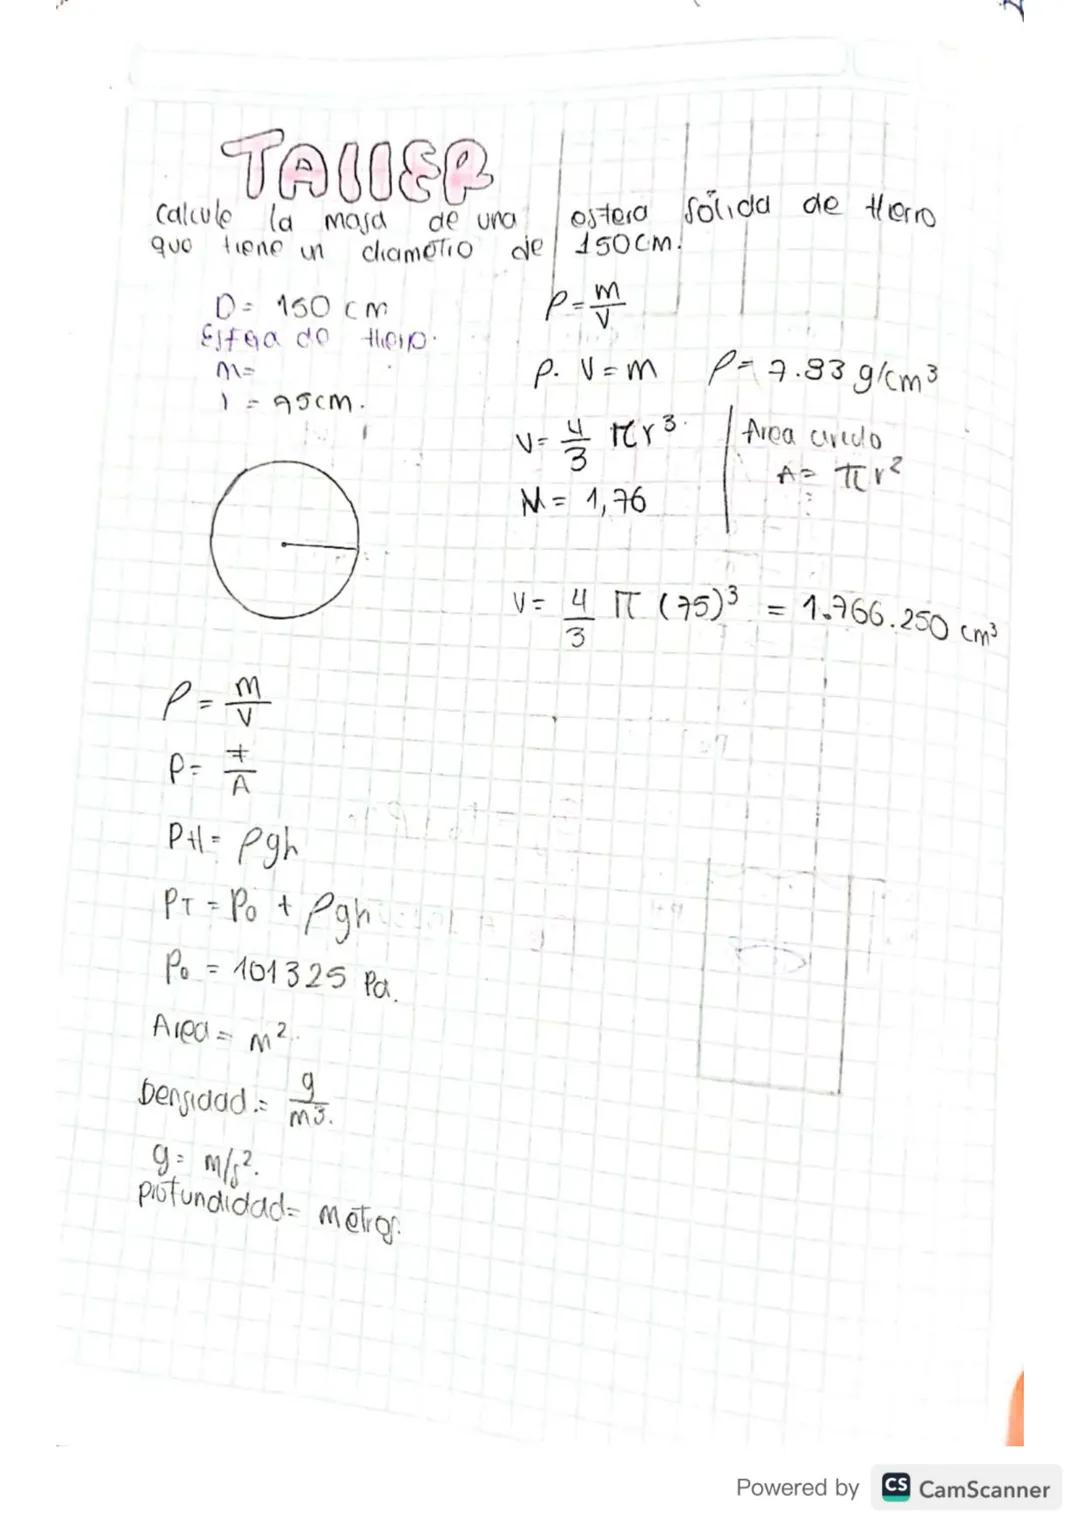 TALLER
Calcule la masa de una esfera sólida de Hierro
que tiene un diametro de 150 cm.
D = 150 cm
Esfera de Hierro.
m =
r = 75cm.
ρ = m/V
ρ. V = m
ρ = 7.83 g/cm³
V = 4/3 πr³.
Area circulo
A = πr²
M = 1,76
V = 4/3 π (75)³ = 1.766.250 cm³
ρ = m/V
P = F/A
PH = ρgh
PT = Po + ρgh
Po = 101325 Pa.
Area = m².
Densidad = g/m³.
g = m/s².
profundidad = metros.
Powered by CS CamScanner